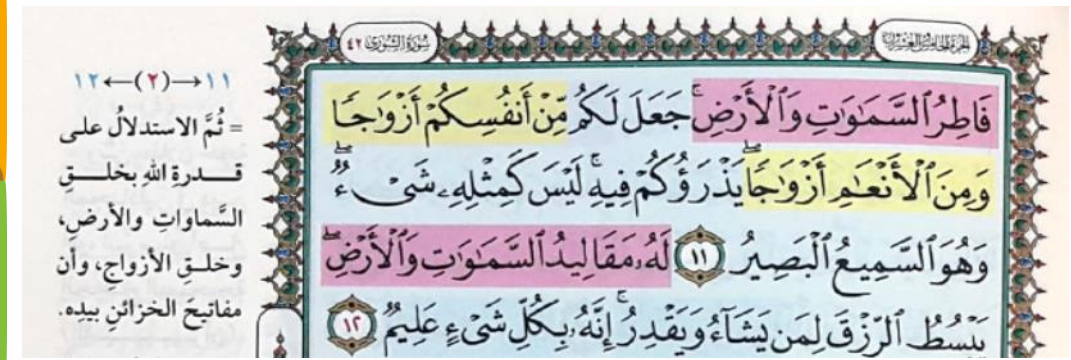 سُورَةُ الشُّورَىٰ ٤٢
الجزء الخامس والعشرون
فَاطِرُ ٱلسَّمَٰوَٰتِ وَٱلْأَرْضِ ۚ جَعَلَ لَكُم مِّنْ أَنفُسِكُمْ أَزْوَٰجًا
وَمِنَ ٱلْأَنْعَٰمِ أَزْوَٰجًا ۖ يَذْرَؤُكُمْ فِيهِ ۚ لَيْسَ كَمِثْلِهِۦ شَىْءٌ ۖ
وَهُوَ ٱلسَّمِيعُ ٱلْبَصِيرُ ١١ لَهُۥ مَقَالِيدُ ٱلسَّمَٰوَٰتِ وَٱلْأَرْضِ ۖ
يَبْسُطُ ٱلرِّزْقَ لِمَن يَشَآءُ وَيَقْدِرُ ۚ إِنَّهُۥ بِكُلِّ شَىْءٍ عَلِيمٌ ١٢
١١→(٢)←١٢
= ثُمَّ الاستدلالُ على
قدرةِ اللهِ بخلقِ
السَّماواتِ والأرضِ،
وخلقِ الأزواجِ، وأن
مفاتيحَ الخزائنِ بيدِه.